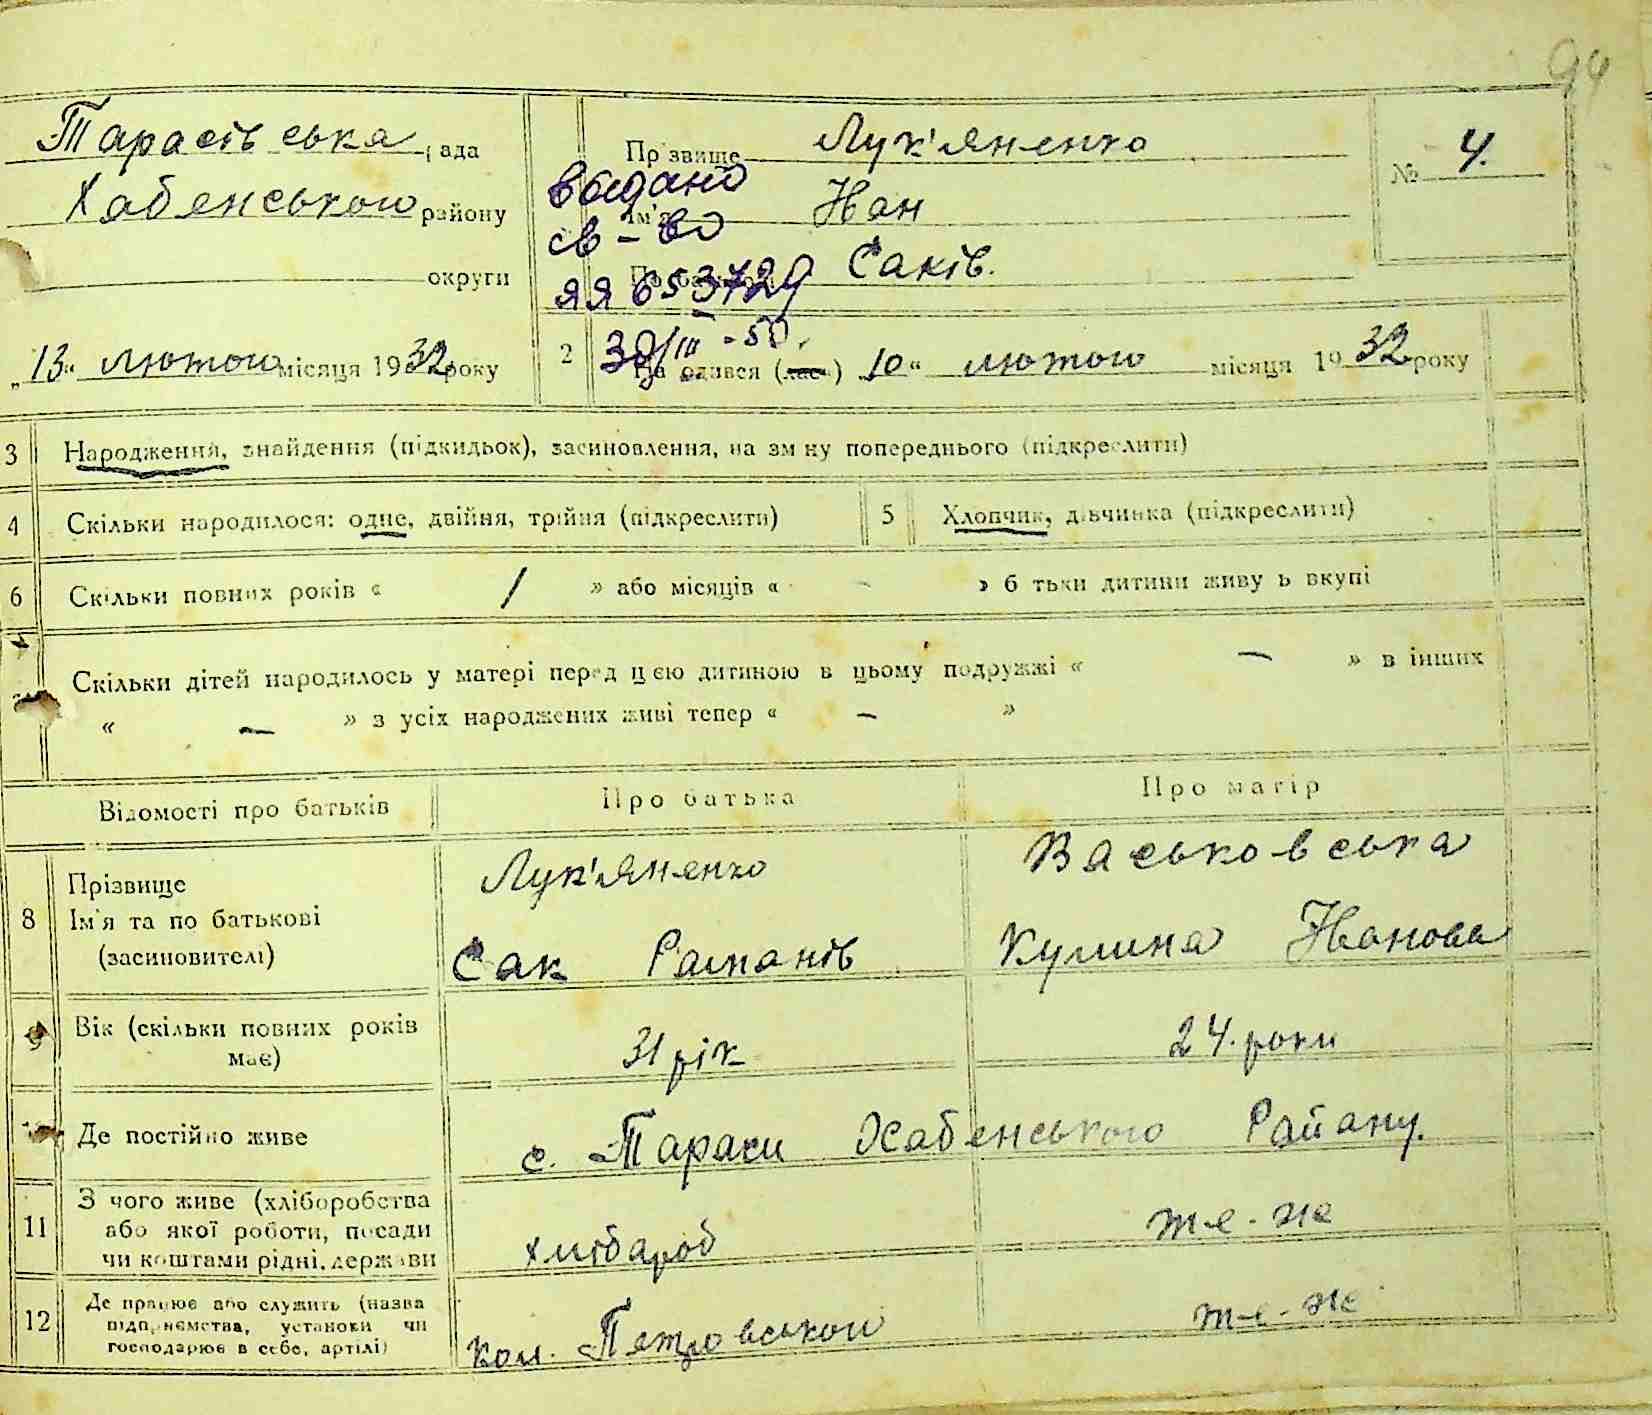 94
Тарасівська рада
Хабенського району
округи
„13“ лютого місяця 1932 року
Прізвище Лук'яненко
№ 4.
выдано
Ім'я Іван
св-во
Саків.
ЯЯ 653729
30/III-50.
2 На одився (лася) „10“ лютого місяця 1932 року
3 Народження, знайдення (підкидьок), засиновлення, на зміну попереднього (підкреслити)
4 Скільки народилося: одне, двійня, трійня (підкреслити) 5 Хлопчик, дівчинка (підкреслити)
6 Скільки повних років « 1 » або місяців « - » б тьки дитини живу ь вкупі
Скільки дітей народилось у матері перед цією дитиною в цьому подружжі « — » в інших
« — » з усіх народжених живі тепер « — »
Відомості про батьків Про батька Про матір
8 Прізвище Лук'яненко Васьковська
Ім'я та по батькові
(засиновителі) Сак Раманів Кулина Іванова
9 Вік (скільки повних років має) 31 рік 24. роки
Де постійно живе с. Тараси Хабенського Райану.
11 З чого живе (хліборобства
або якої роботи, посади
чи коштами рідні, держави хлібароб те-же
12 Де працює або служить (назва
підприємства, установи чи
господарює в себе, артілі) кол. Петровського те-же